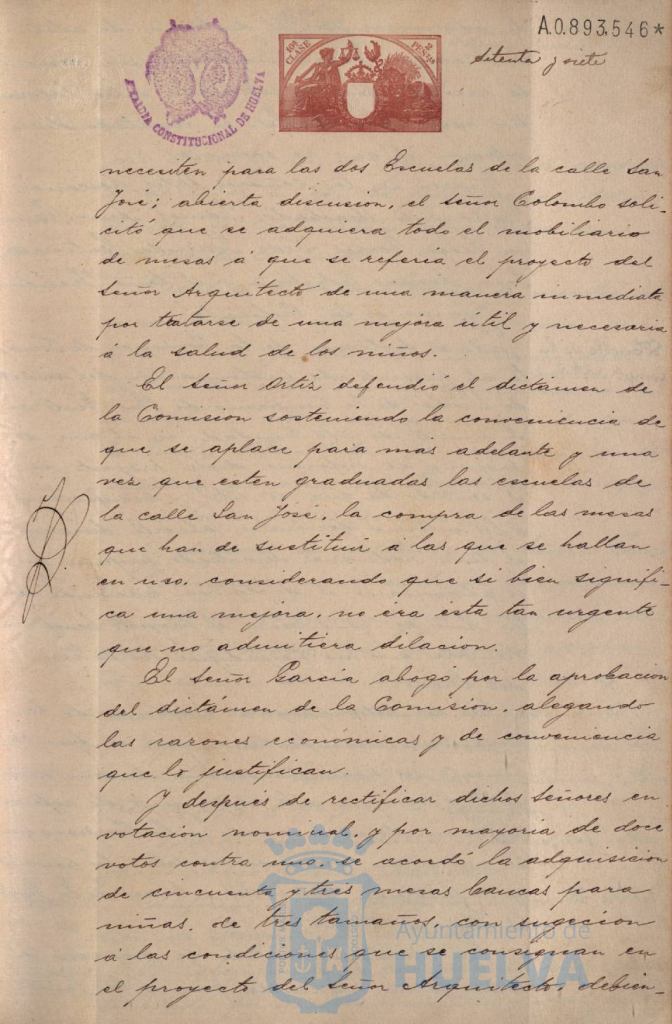 A.0.893.546*
10ª CLASE
2 PESETAS
ALCALDIA CONSTITUCIONAL DE HUELVA
Setenta y siete
necesiten para las dos Escuelas de la calle San
José; abierta discusion, el señor Colombo soli-
citó que se adquiera todo el mobiliario
de mesas á que se referia el proyecto del
Señor Arquitecto de una manera inmediata
por tratarse de una mejora útil y necesaria
á la salud de los niños.
El Señor Ortiz defendió el dictámen de
la Comision sosteniendo la conveniencia de
que se aplace para más adelante y una
vez que esten graduadas las escuelas de
la calle San José, la compra de las mesas
que han de sustituir á las que se hallan
en uso, considerando que si bien signifi-
ca una mejora, no era esta tan urgente
que no admitiera dilacion.
El Señor Garcia abogó por la aprobacion
del dictámen de la Comision, alegando
las razones económicas y de conveniencia
que lo justifican.
Y después de rectificar dichos Señores en
votacion nominal, y por mayoria de doce
votos contra uno, se acordó la adquisicion
de cincuenta y tres mesas bancas para
niñas, de tres tamaños, con sugecion
á las condiciones que se consignan en
el proyecto del Señor Arquitecto, debien-
Ayuntamiento de
HUELVA